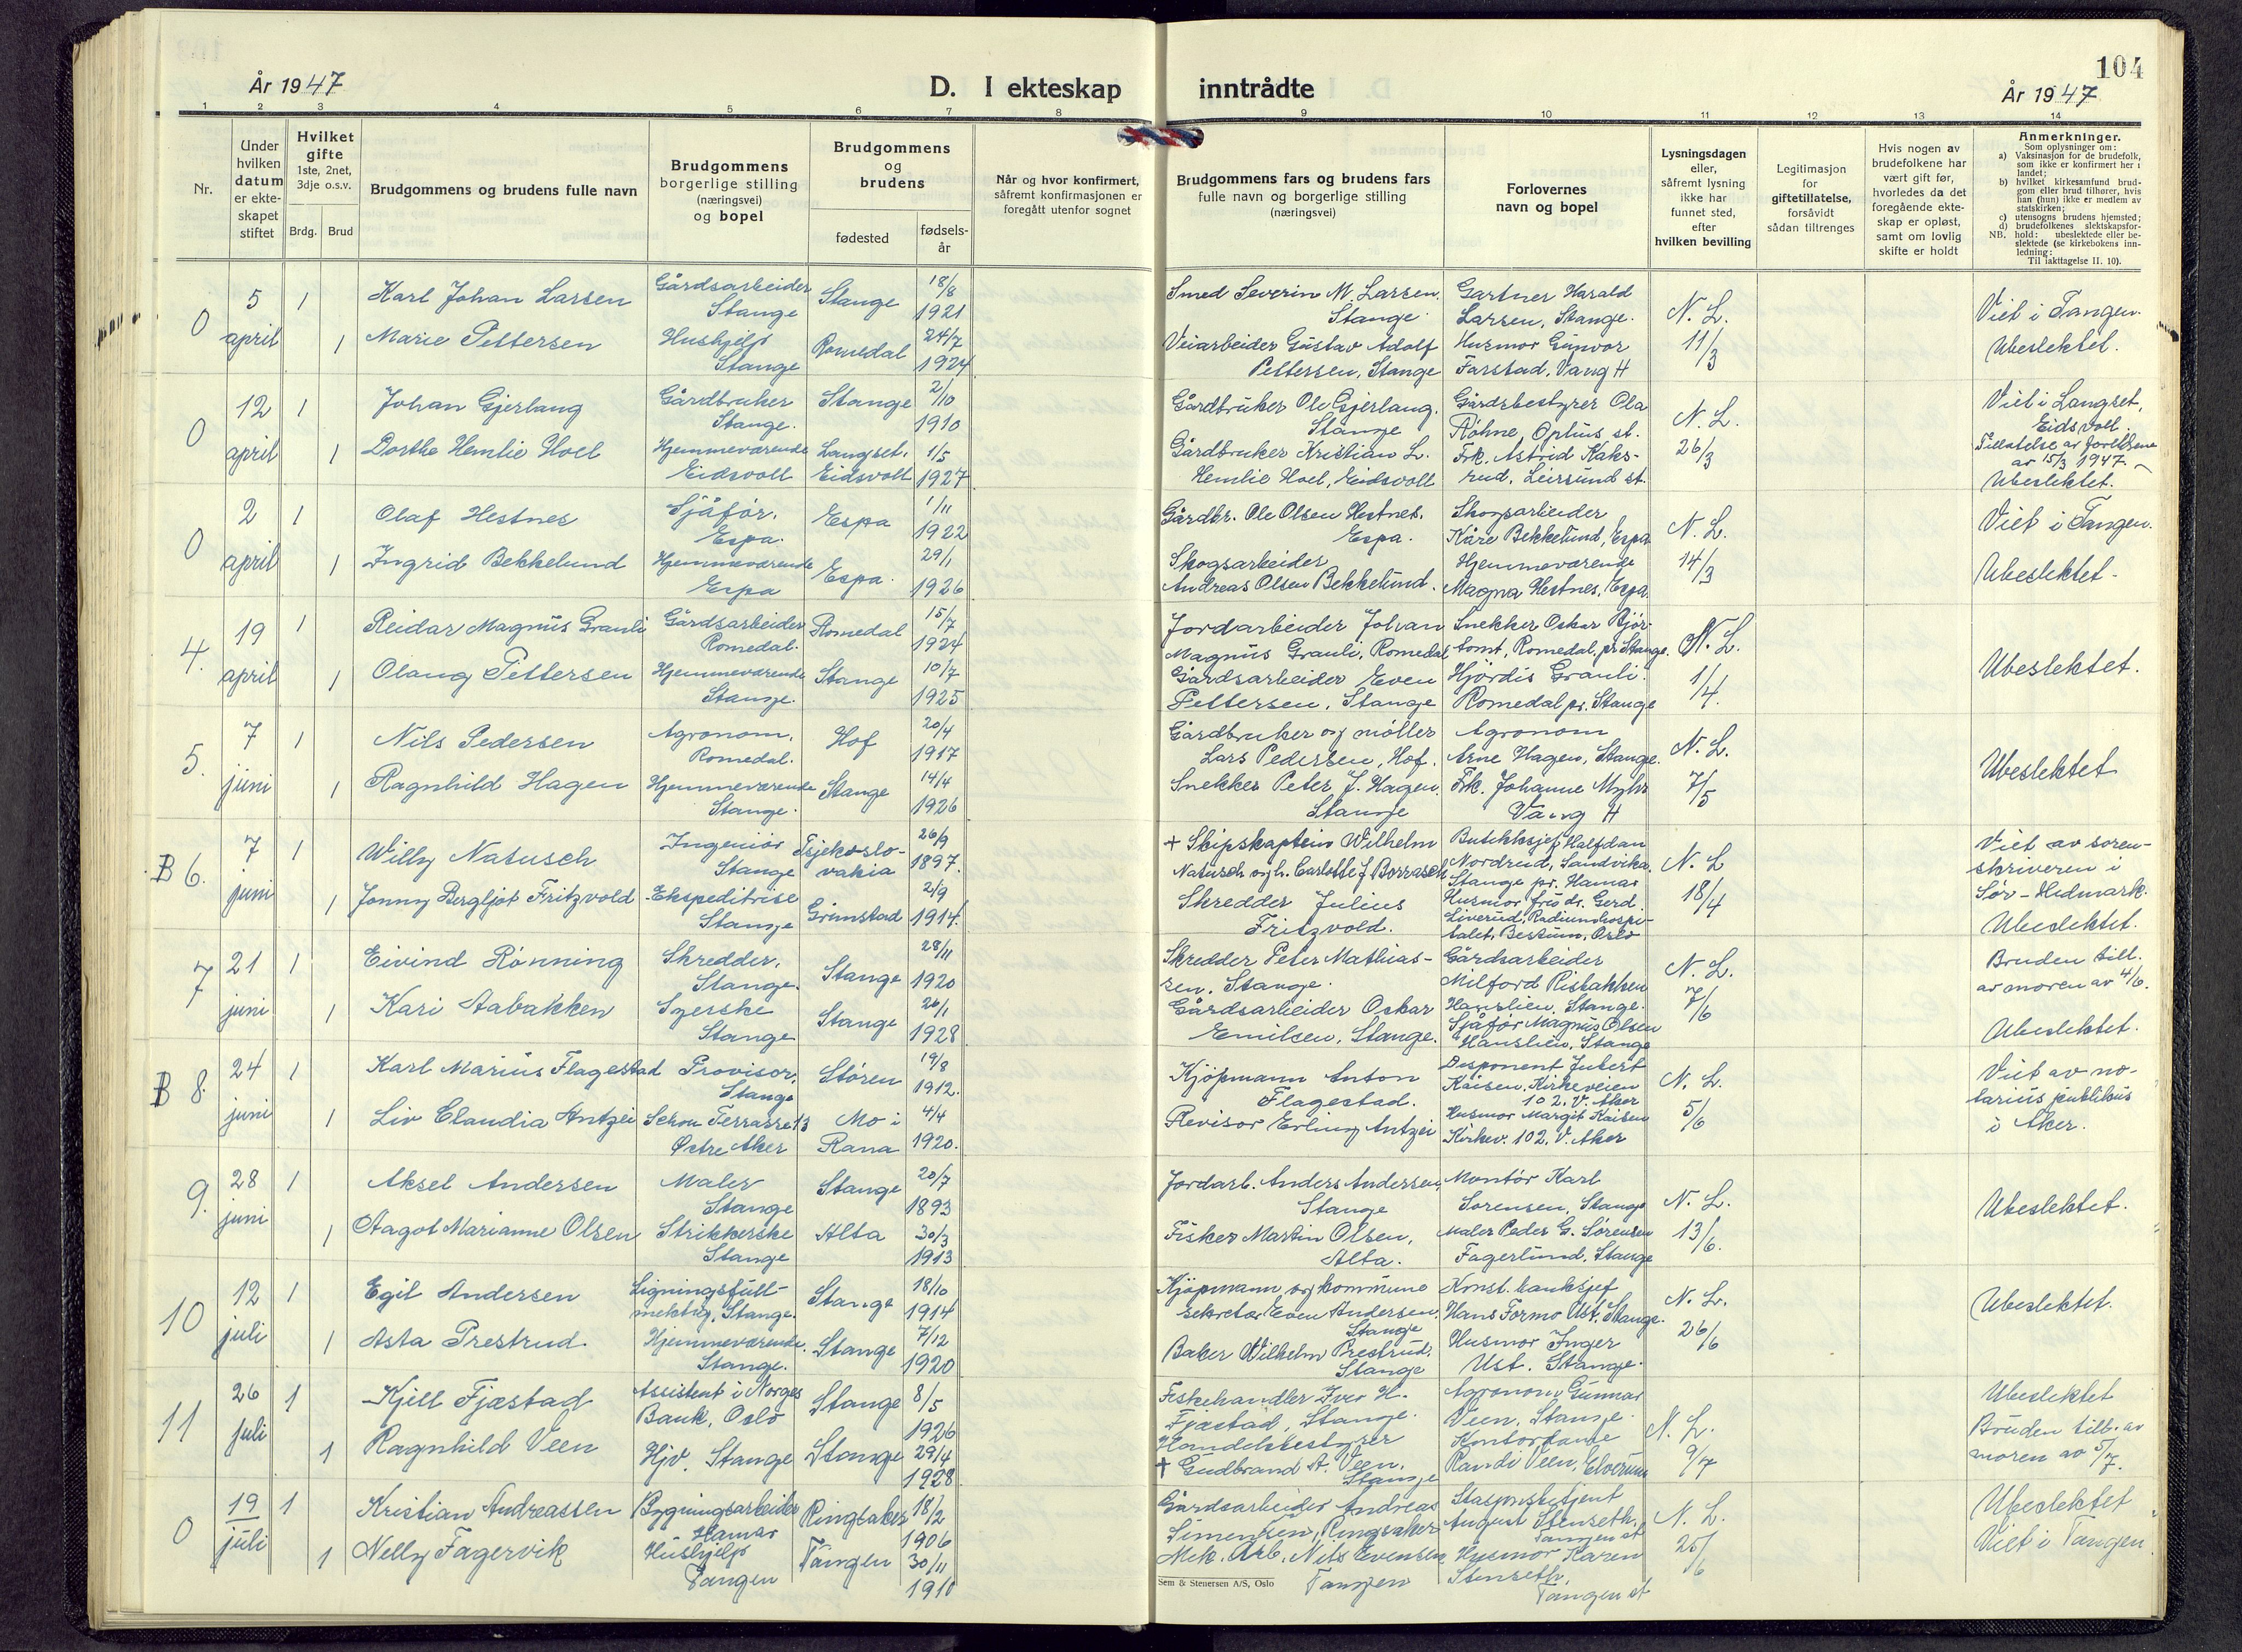 104
År 1947
D. I ekteskap inntrådte
År 1947
1 2 3 4 5 6 7 8 9 10 11 12 13 14
Nr.
Under hvilken datum er ekte-skapet stiftet
Hvilket gifte 1ste, 2net, 3dje o.s.v.
Brdg. Brud
Brudgommens og brudens fulle navn
Brudgommens borgerlige stilling (næringsvei) og bopel
Brudgommens og brudens
fødested
fødsels-år
Når og hvor konfirmert, såfremt konfirmasjonen er foregått utenfor sognet
Brudgommens fars og brudens fars fulle navn og borgerlige stilling (næringsvei)
Forlovernes navn og bopel
Lysningsdagen eller, såfremt lysning ikke har funnet sted, efter hvilken bevilling
Legitimasjon for giftetillatelse, forsåvidt sådan tiltrenges
Hvis nogen av brudefolkene har vært gift før, hvorledes da det foregående ekte-skap er opløst, samt om lovlig skifte er holdt
Anmerkninger.
Som oplysninger om:
a) Vaksinasjon for de brudefolk, som ikke er konfirmert her i landet;
b) hvilket kirkesamfund brud-gom eller brud tilhører, hvis han (hun) ikke er medlem av statskirken;
c) utensogns brudens hjemsted;
d) brudefolkenes slektskapsfor-hold: ubeslektede eller be-slektede (se kirkebokens inn-ledning:
NB.
Til iakttagelse II. 10).
0 5 april 1 Karl Johan Larsen Gårdsarbeider Stange Stange 18/8 1921 Smed Severin M. Larsen. Stange Gartner Harald Larsen, Stange. N. L. 11/3 Viet i Tangen.
1 Marie Pettersen Hushjelp Stange Romedal 24/7 1924 Veiarbeider Gustav Adolf Pettersen, Stange Husmor Gunvor Farstad, Vang H Ubeslektet.
0 12 april 1 Johan Gjerlang Gårdbruker Stange. Stange 2/10 1910 Gårdbruker Ole Gjerlang. Stange Gårdsbestyrer Ola Røhne, Optus st. N. L. 26/3 Viet i Langset, Eidsvoll.
1 Dorthe Hemlie Hoel Hjemmeværende Eidsvoll Langset. Eidsvoll 1/5 1927 Gårdbruker Kristian L. Hemlie Hoel, Eidsvoll Frk. Astrid Kaks-rud, Leirsund st. Tillatelse av foreldrene av 15/3 1947. Ubeslektet.
0 2 april 1 Olaf Hestnes Sjåfør. Espa. Espa 1/11 1922 Gårdbr. Ole Olsen Hestnes. Espa. Skogsarbeider Kåre Bekkelund, Espa N. L. 14/3 Viet i Tangen.
1 Ingrid Bekkelund Hjemmeværende Espa Espa. 29/1 1926 Skogsarbeider Andreas Olsen Bekkelund. Hjemmeværende Magna Hestnes, Espa. Ubeslektet.
4. 19 april 1 Reidar Magnus Grauli Gårdsarbeider Romedal. Romedal 15/7 1924 Jordarbeider Johan Magnus Grauli, Romedal Snekker Oskar Bjør-tomt, Romedal, pr. Stange. N. L. 1/4. Ubeslektet.
1 Olaug Pettersen Hjemmeværende Stange. Stange 10/7 1925 Gårdsarbeider Even Pettersen, Stange Hjördis Grauli. Romedal pr. Stange
5. 7 juni 1 Nils Pedersen Agronom. Romedal. Hof 20/4 1917 Gårdbruker og møller Lars Pedersen, Hof. Agronom Arne Hagen, Stange. N. L. 7/5 Ubeslektet
1 Ragnhild Hagen Hjemmeværende Stange. Stange 14/4 1926 Snekker Peter J. Hagen Stange Frk. Johanne Myhr Vang H
B 6. 7 juni 1 Willy Natusch Ingeniør Stange Tsjekoslo-vakia 26/9 1897. + Skipskaptein Wilhelm Natusch og h. Carlotte f Borrasch Butikksjef Halfdan Nordrud, Sandvika Stange pr. Hamar N. L 18/4 Viet av soren-skriveren i Sør-Hedmark.
1 Jonny Bergljot Fritzvold Ekspeditrise Stange Grimstad 2/9 1914. Skredder Julius Fritzvold. Husmor fru dr. Gerd Liverud, Radiumhospi-talet, Bestum, Oslo Ubeslektet.
7 21 juni 1 Eivind Rønning Skredder. Stange. Stange 28/11 1920 Skredder Peter Mathias-sen. Stange. Gårdsarbeider Milford Risbakken Hanslien, Stange. N. L. 7/6 Bruden till. av moren av 4/6.
1 Kari Aabakken Syerske Stange Stange 26/1 1928 Gårdsarbeider Oskar Emilsen, Stange. Sjåfør Magnus Olsen Hanslien, Stange Ubeslektet.
B 8. 24 juni 1 Karl Marius Flagestad Provisor. Stange Støren 19/8 1912. Kjøpmann Anton Flagestad. Disponent Jubert Kaisen. Kirkeveien 102. V. Aker N. L. 5/6 Viet av no-tarius publikus i Aker.
1 Liv Claudia Antzei Schou Terrasse 13 Østre Aker Mo i Rana 4/4 1920. Revisor Erling Antzei Husmor Margit Kaisen Kirkev. 102. V. Aker
9. 28 juni 1 Aksel Andersen Maler Stange Stange 20/7 1893 Jordarb. Anders Andersen, Stange Montør Karl Sørensen, Stange N. L. 13/6. Ubeslektet.
1 Aagot Marianne Olsen Strikkerske Stange Alta 30/3 1913 Fisker Martin Olsen, Alta. Maler Peder G. Sørensen Fagerlund, Stange
10 12 juli 1 Egil Andersen Ligningsfull-mektig, Stange. Stange 18/10 1914 Kjøpmann og kommune sekretær Even Andersen. Stange Konst. banksjef Hans Formo Ust, Stange. N. L. 26/6 Ubeslektet.
1 Asta Prestrud Hjemmeværende. Stange. Stange 7/12 1920 Baker Wilhelm Prestrud. Stange Husmor Inger Ust. Stange.
11 26 juli 1 Kjell Fjæstad Assistent i Norges Bank, Oslo Stange 8/5 1926 Fiskehandler Iver H. Fjæstad, Stange. Agronom Gunnar Veen, Stange. N. L. 9/7 Ubeslektet
1 Ragnhild Veen Hjv. Stange Stange 29/4 1928 Handelsbestyrer + Gudbrand A. Veen. Stange Kontordame Randi Veen, Elverum Bruden till. av moren av 5/7.
0 19 juli 1 Kristian Andreassen Bygningsarbeider Hamar Ringsaker 18/2 1906 Gårdsarbeider Andreas Simensen, Ringsaker Stasjonsbetjent August Stenseth. Tangen st N. L. 25/6 Ubeslektet
1 Nelly Fagervik Hushjelp Tangen Tangen 30/11 1910 Mek. Arb. Nils Evensen Tangen Husmor Karen Stenseth, Tangen st Viet i Tangen
Sem & Stenersen A/S, Oslo